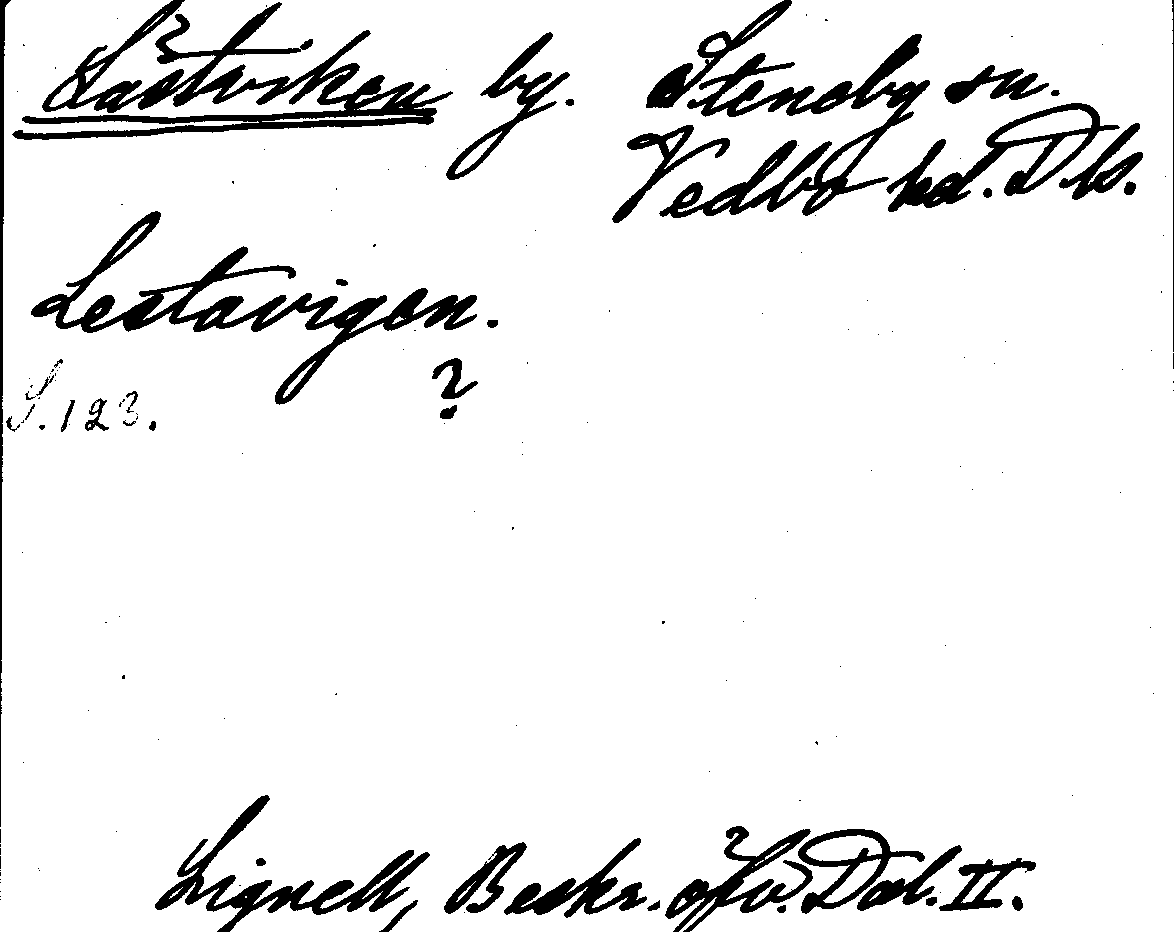 Låstviken by. Steneby sn.
Vedbo hd. Dls.
Lestavigen.
?
S. 123.
Lignell, Beskr. öfv. Dal. II.